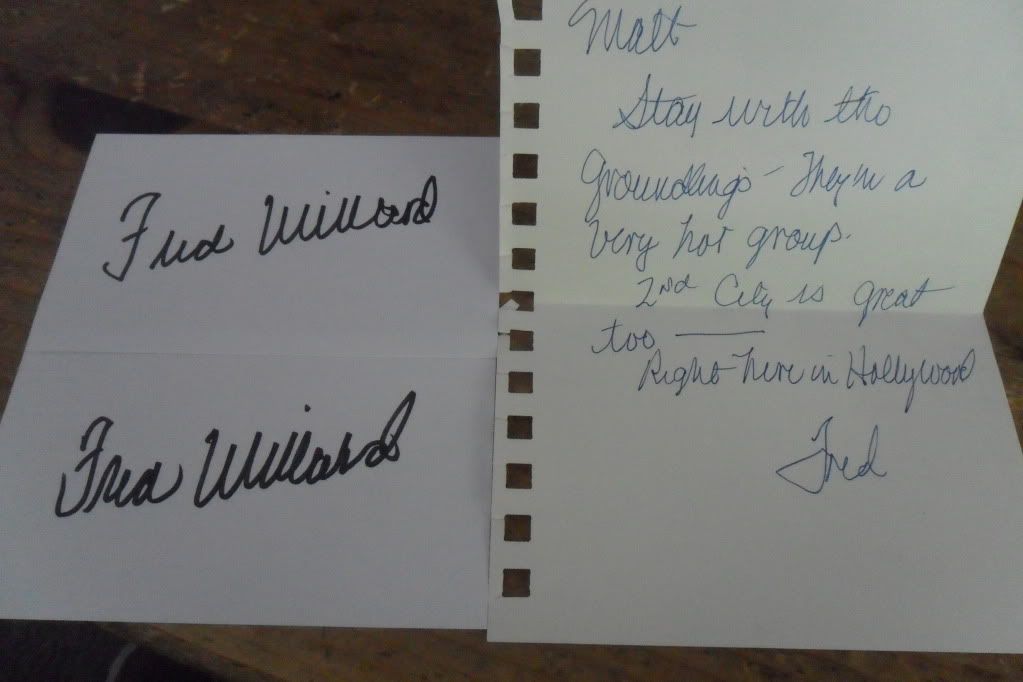 Fred Willard
Fred Willard
Matt
Stay with the
Groundlings - They're a
very hot group.
2nd City is great
too —
Right here in Hollywood
Fred